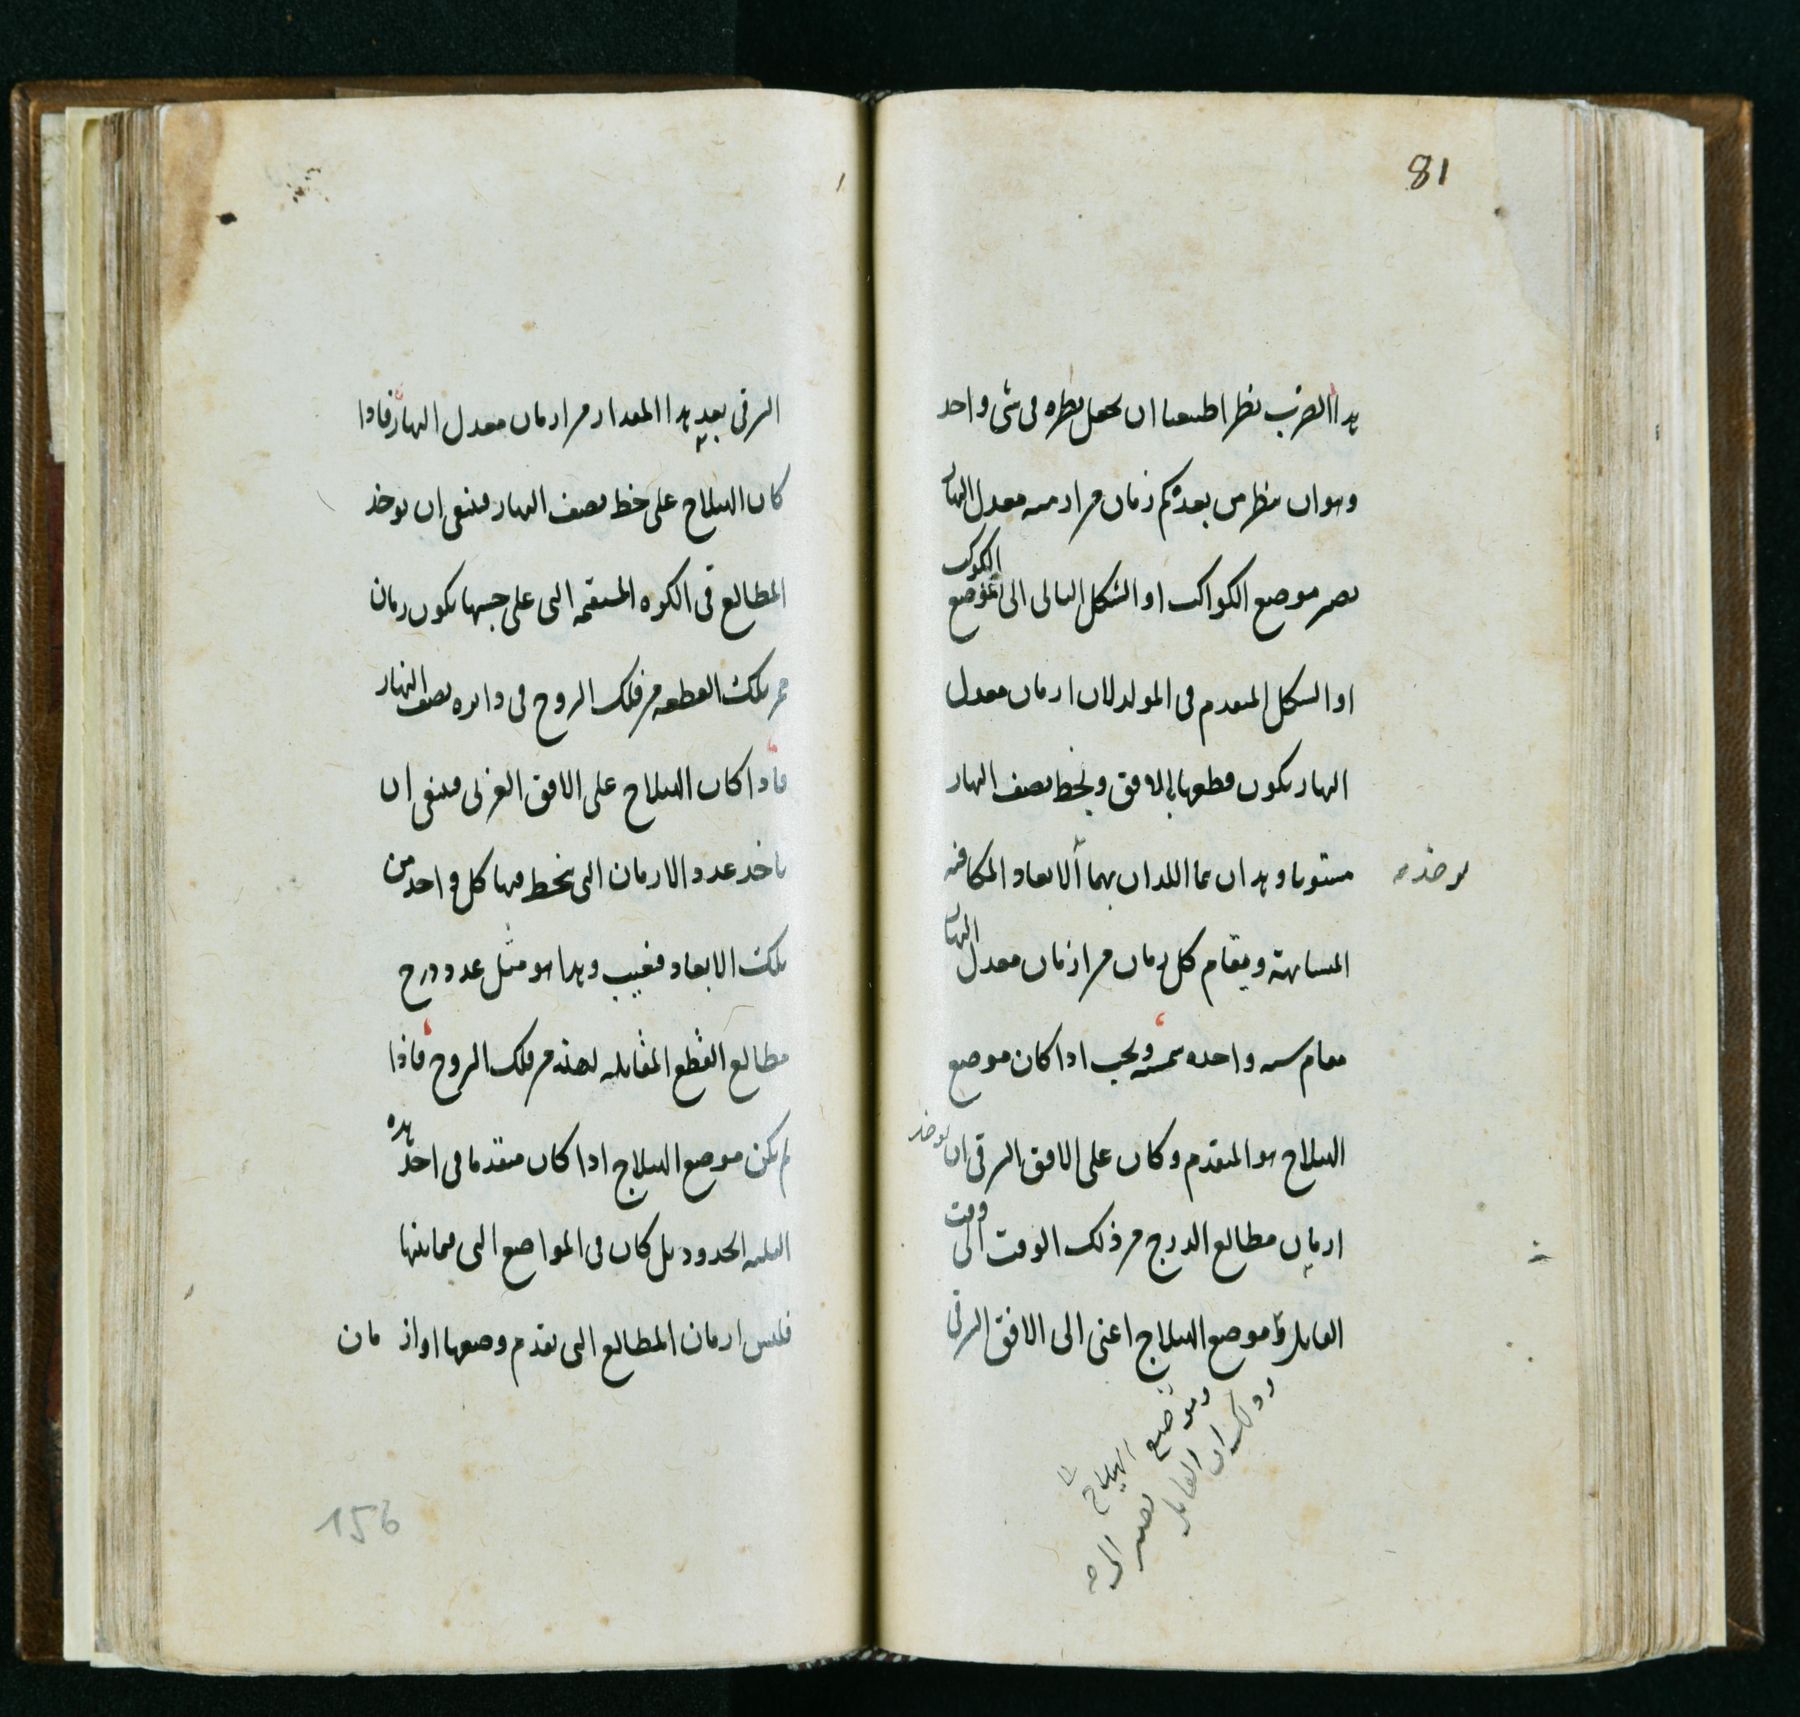 81
هذا الضرب نظرا طبيعيا ان يجعل نظره فى شى واحد
وهو ان ينظر من بعد كم زمان من ازمنه معدل النهار
يصير موضع الكواكب او الشكل التالى الى موضع الكوكب
او الشكل المتقدم فى المولد لان ازمان معدل
النهار يكون قطعها بالافق وبخط نصف النهار
مستويا وهذان هما اللذان بهما الابعاد المكانيه
المتشابهة ويقام كل زمان من ازمان معدل النهار
مقام سنه واحده شمسيه ويجب اذا كان موضع
الهيلاج هو المتقدم وكان على الافق الشرقى ان يوخذ
ازمان مطالع الدرج من ذلك الوقت الى وقت
المقابله موضع الهيلاج اعنى الى الافق الشرقى
يوخذ
وذلك ان المقابل
وموضع الهيلاج يصير الى
الشرقى بعد هذا المقدار من ازمان معدل النهار فاذا
كان الهيلاج على خط نصف النهار فينبغى ان يوخذ
المطالع فى الكره المستقيمه التى على حسبها يكون زمان
ممر تلك القطعه من فلك البروج فى دايره نصف النهار
فاذا كان الهيلاج على الافق الغربى فينبغى ان
ياخذ عدد الازمان التى ينحط فيها كل واحد من
تلك الابعاد فيغيب وهذا هو مثل عدد درج
مطالع القطع المقابله لهذه من فلك البروج فاذا
لم يكن موضع الهيلاج اذا كان متقدما فى احد هذه
الثلثه الحدود بل كان فى المواضع التى فيما بينها
فليس ازمان المطالع التى تقدم وصفها او ازمان
156